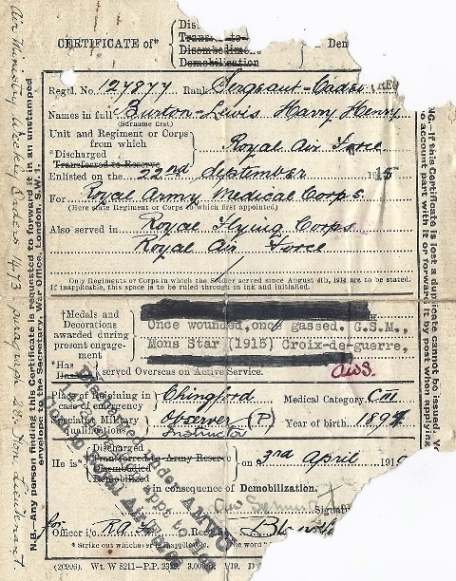 Dis
CERTIFICATE of*
Disembodiment
Demobilization
Den
Regtl. No. 127877 Rank Sergeant-Cade
Names in full Burton-Lewis Harry Henry
(Surname first)
Unit and Regiment or Corps
from which
*Discharged
Transferred to Reserve
Royal Air Force
Enlisted on the 22nd September 1915
For Royal Army Medical Corps
(Here state Regiment or Corps to which first appointed)
Also served in Royal Flying Corps
Royal Air Force
Only Regiments or Corps in which the Soldier served since August 4th, 1914 are to be stated.
If inapplicable, this space is to be ruled through in ink and initialled.
†Medals and
Decorations
awarded during
present engage-
ment
Once wounded, once gassed. G.S.M.,
Mons Star (1915) Croix-de-guerre,
*Has
served Overseas on Active Service.
Place of Rejoining in
case of emergency
Chingford
Medical Category CIII
Specialist Military
qualifications
Observer (P)
Instructor
Year of birth 1894
He is*
Discharged
Transferred to Army Reserve
Disembodied
Demobilized
on 3rd April 191
in consequence of Demobilization.
Signat
for Officer i/c R.A.F. Rec
* Strike out whichever is inapplicable. The word "
N.B.—Any person finding this Certificate is requested to forward it in an unstamped
envelope to the Secretary, War Office, London, S.W.1.
NG.—If this Certificate is lost a duplicate cannot be issued.
Air Ministry Weekly Orders 1473 para
Hon Lieutenant.